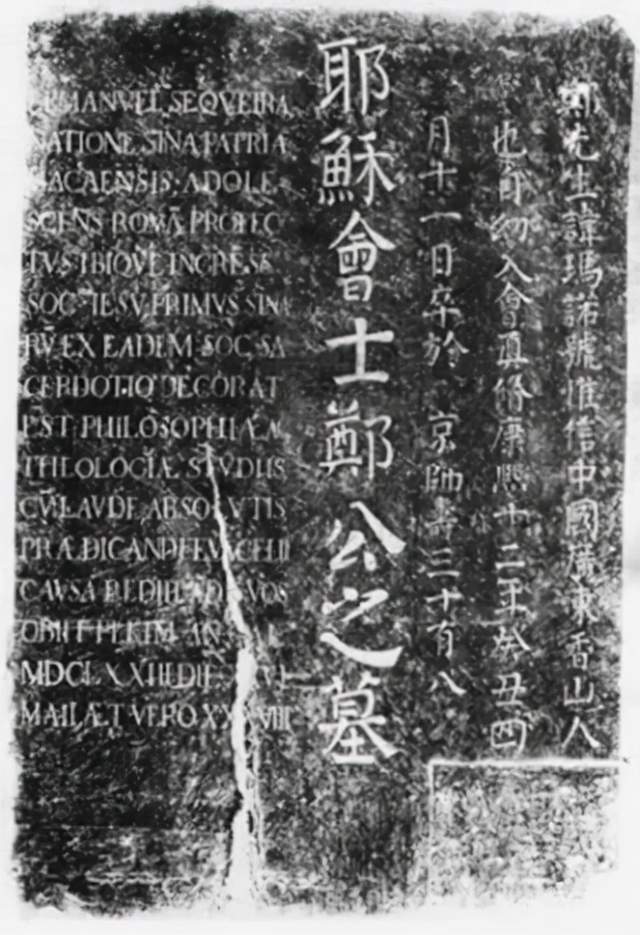 鄭先生諱瑪諾號惟信中國廣東香山人
也自幼入會真脩康熙十二年癸丑四
月十一日卒於 京師壽三十有八
耶穌會士鄭公之墓
EMANVEL SEQVEIRA
NATIONE SINA PATRIA
MACAENSIS ADOLE
SCENS ROMĀ PROFEC
TVS IBIQVE INGRESS
SOC IESV PRIMVS SINA
RV̄ EX EADEM SOC SA
CERDOTIO DECORAT
EST PHILOSOPHIÆ A
THEOLOGIÆ STVDIIS
CV̄ LAVDE ABSOLVTIS
PRÆDICANDI EVĀGELII
CAVSA REDIIT AD SVOS
OBIIT PEKIM AN
MDCLXXIII DIE VI
MAII ÆT VERO XXXVIII